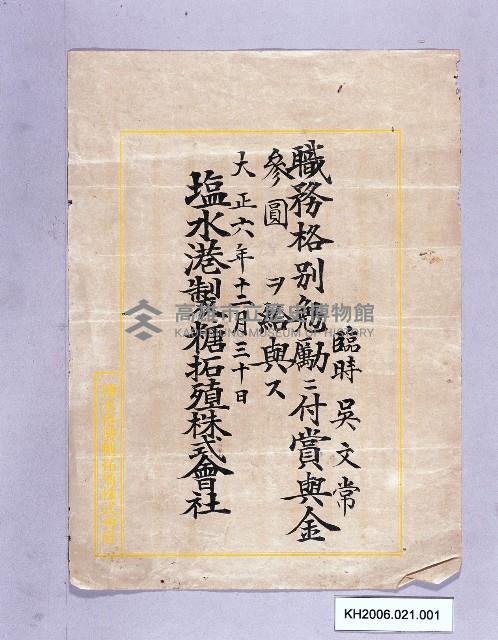 臨時 吳文常
職務格別勉勵ニ付賞與金
參圓ヲ給與ス
大正六年十二月三十日
塩水港製糖拓殖株式會社
塩水港製糖拓殖株式會社
高雄市立歷史博物館
KAOHSIUNG MUSEUM OF HISTORY
KH2006.021.001